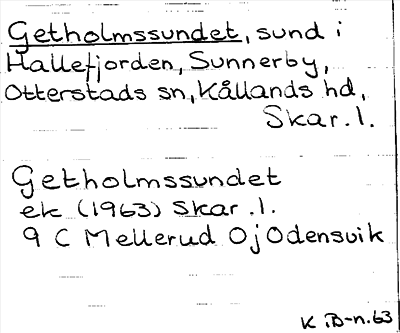 Getholmssundet, sund i
Hallefjorden, Sunnerby,
Otterstads sn, Kållands hd,
Skar. l.
Getholmssundet
ek (1963) Skar. l.
9 C Mellerud 0j Odensvik
K iB-n. 63